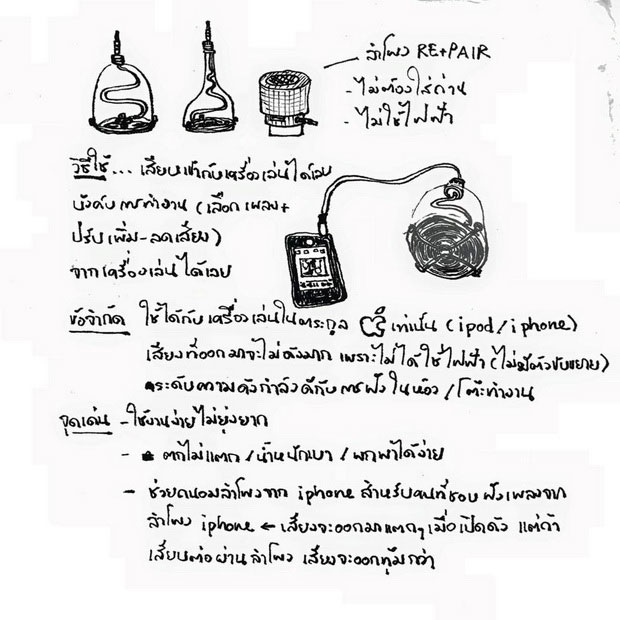 ลำโพง RE+PAIR
- ไม่ต้องใส่ถ่าน
- ไม่ใช้ไฟฟ้า
วิธีใช้... เสียบเข้ากับเครื่องเล่นได้เลย
บังคับการทำงาน (เลือกเพลง+
ปรับเพิ่ม-ลดเสียง)
จากเครื่องเล่นได้เลย
ข้อจำกัด ใช้ได้กับเครื่องเล่นในตระกูล เท่านั้น (ipod/iphone)
เสียงที่ออกมาจะไม่ดังมาก เพราะไม่ได้ใช้ไฟฟ้า (ไม่มีตัวขับขยาย)
ระดับความดังกำลังดีกับการฟังในห้อง/โต๊ะทำงาน
จุดเด่น - ใช้งานง่ายไม่ยุ่งยาก
- ตกไม่แตก/น้ำหนักเบา/พกพาได้ง่าย
- ช่วยถนอมลำโพงจาก iphone สำหรับคนที่ชอบฟังเพลงจาก
ลำโพง iphone ← เสียงจะออกมาแตกๆเมื่อเปิดดัง แต่ถ้า
เสียบต่อผ่านลำโพง เสียงจะออกทุ้มกว่า